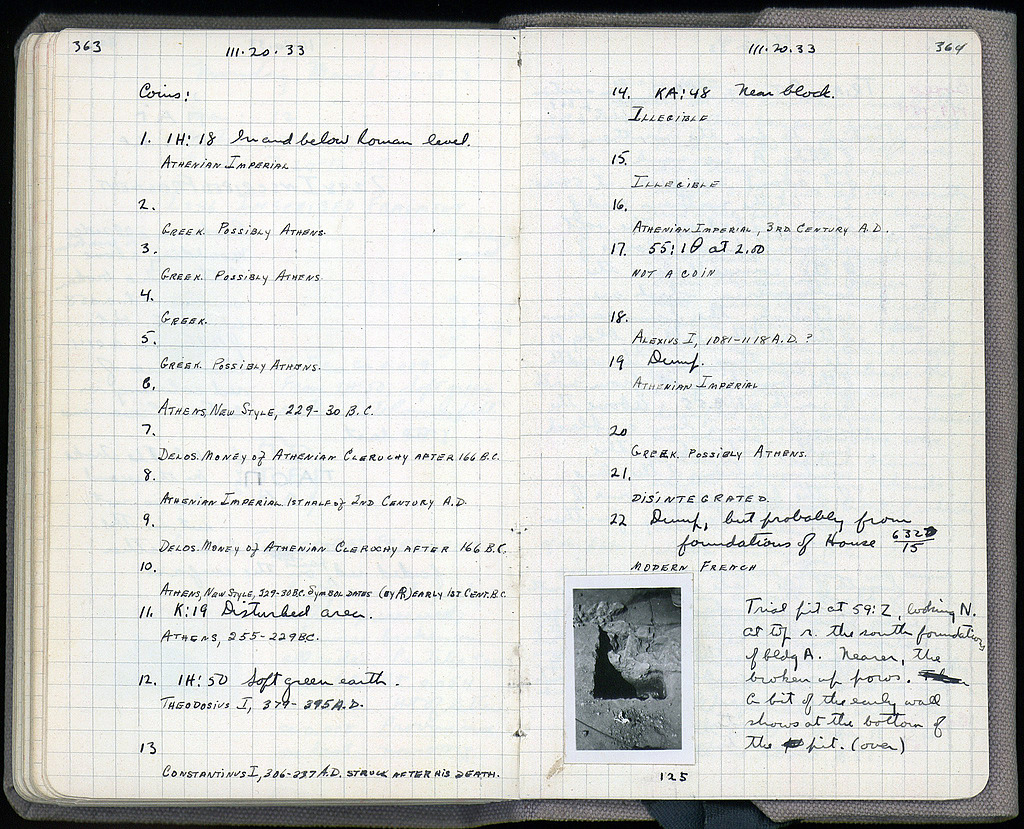 363
III·20·33
Coins:
1. 1H:18 In and below Roman level.
ATHENIAN IMPERIAL
2.
GREEK. POSSIBLY ATHENS.
3.
GREEK. POSSIBLY ATHENS.
4.
GREEK.
5.
GREEK. POSSIBLY ATHENS.
6.
ATHENS, NEW STYLE, 229-30 B.C.
7.
DELOS. MONEY of ATHENIAN CLERUCHY AFTER 166 B.C.
8.
ATHENIAN IMPERIAL 1ST HALF of 2ND CENTURY A.D.
9.
DELOS. MONEY of ATHENIAN CLERUCHY AFTER 166 B.C.
10.
ATHENS, NEW STYLE, 229-30 B.C. SYMBOL DATES EARLY 1ST CENT. B.C.
11. K:19 Disturbed area.
ATHENS, 255-229 B.C.
12. 1H:50 Soft green earth.
THEODOSIUS I, 379-395 A.D.
13
CONSTANTINUS I, 306-337 A.D. STRUCK AFTER HIS DEATH.
III·20·33
364
14. KA:48 Near block.
ILLEGIBLE
15.
ILLEGIBLE
16.
ATHENIAN IMPERIAL, 3RD CENTURY A.D.
17. 55:1θ at 2.00
NOT A COIN
18.
ALEXIUS I, 1081-1118 A.D. ?
19 Dump.
ATHENIAN IMPERIAL
20
GREEK. POSSIBLY ATHENS.
21.
DISINTEGRATED.
22 Dump, but probably from
foundations of House 632/15
MODERN FRENCH
Trial pit at 59:Z, looking N.
at top r. the south foundations
of bldg A. Nearer, the
broken up poros.
a bit of the early wall
shows at the bottom of
the pit. (over)
125